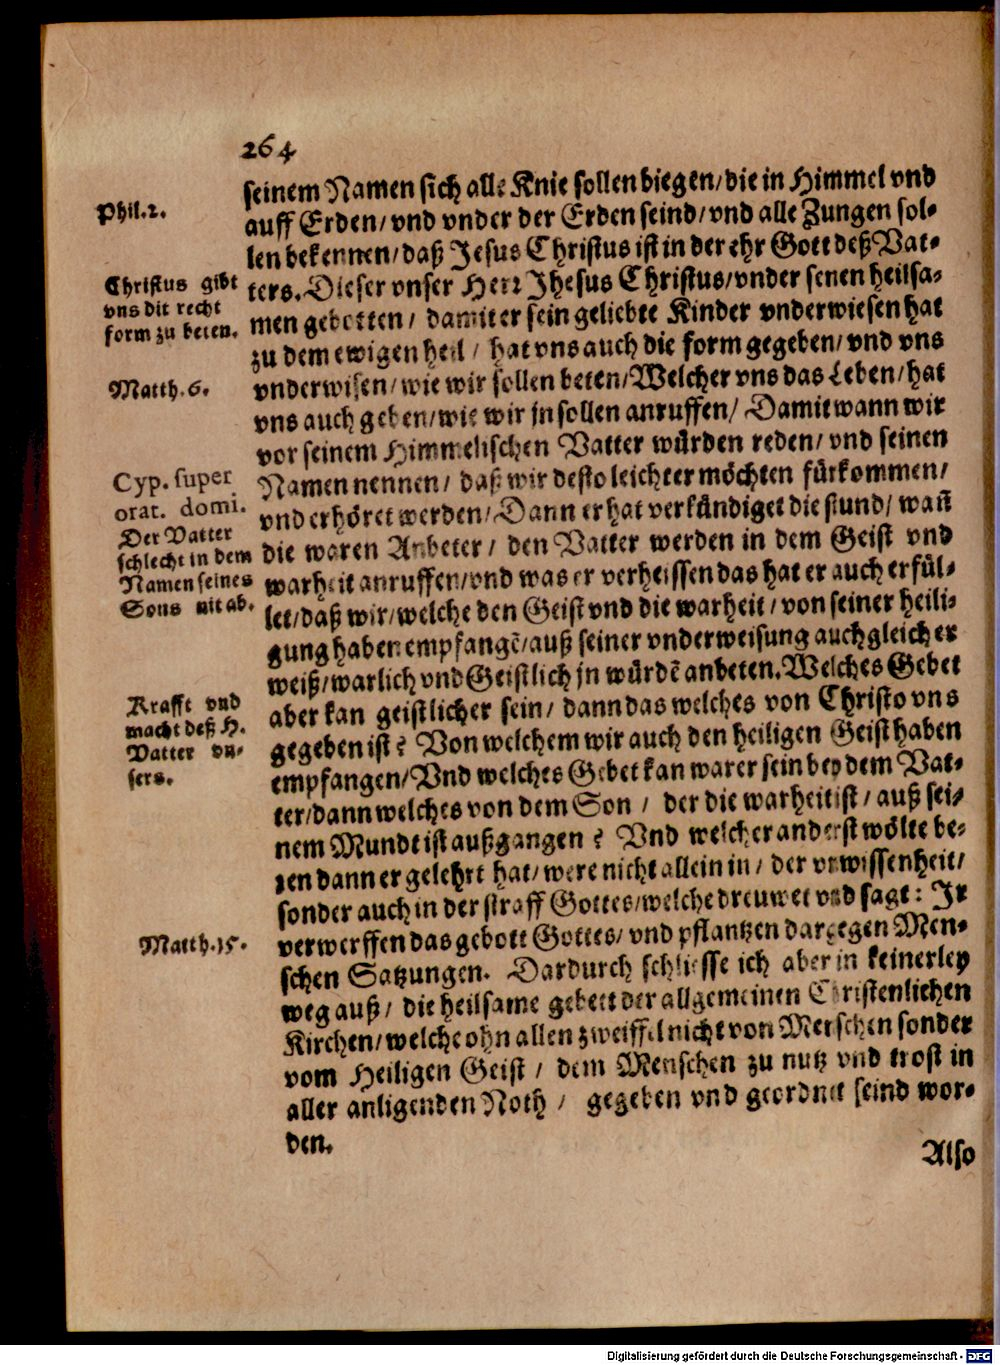 264
seinem Namen sich alle Knie sollen biegen/ die in Himmel vnd
Phil. 2.
auff Erden/ vnd vnder der Erden seind/ vnd alle Zungen sol-
len bekennen/ daß Jesus Christus ist in der ehr Gott deß Vat-
Christus gibt
vns die recht
form zu beten.
ters. Dieser vnser Herr Jhesus Christus/ vnder senen heilsa-
men gebotten/ damit er sein geliebte Kinder vnderwiesen hat
zu dem ewigen heil/ hat vns auch die form gegeben/ vnd vns
Matth. 6.
vnderwisen/ wie wir sollen beten/ Welcher vns das Leben/ hat
vns auch geben/ wie wir jn sollen anruffen/ Damit wann wir
vor seinem Himmelischen Vatter würden reden/ vnd seinen
Cyp. super
orat. domi.
Der Vatter
schlecht in dem
Namen seines
Sons nit ab.
Namen nennen/ daß wir desto leichter möchten fürkommen/
vnd erhöret werden/ Dann er hat verkündiget die stund/ wañ
die waren Anbeter/ den Vatter werden in dem Geist vnd
warheit anruffen/ vnd was er verheissen das hat er auch erfül-
let/ daß wir/ welche den Geist vnd die warheit/ von seiner heili-
gung haben empfangẽ/ auß seiner vnderweisung auch gleicher
weiß/ warlich vnd Geistlich jn würdẽ anbeten. Welches Gebet
Krafft vnd
macht deß H.
Vatter vn-
sers.
aber kan geistlicher sein/ dann das welches von Christo vns
gegeben ist? Von welchem wir auch den heiligen Geist haben
empfangen/ Vnd welches Gebet kan warer sein bey dem Vat-
ter/ dann welches von dem Son/ der die warheit ist/ auß sei-
nem Mundt ist außgangen? Vnd welcher anderst wölte be-
ten dann er gelehrt hat/ were nicht allein in/ der vnwissenheit/
sonder auch in der straff Gottes/ welche dreuwet vnd sagt: Ir
Matth. 15.
verwerffen das gebott Gottes/ vnd pflantzen dargegen Men-
schen Satzungen. Dardurch schliesse ich aber in keinerley
weg auß/ die heilsame gebett der allgemeinen Christenlichen
Kirchen/ welche ohn allen zweiffel nicht von Menschen sonder
vom Heiligen Geist/ dem Menschen zu nutz vnd trost in
aller anligenden Noth/ gegeben vnd geordnet seind wor-
den.
Also
Digitalisierung gefördert durch die Deutsche Forschungsgemeinschaft - DFG